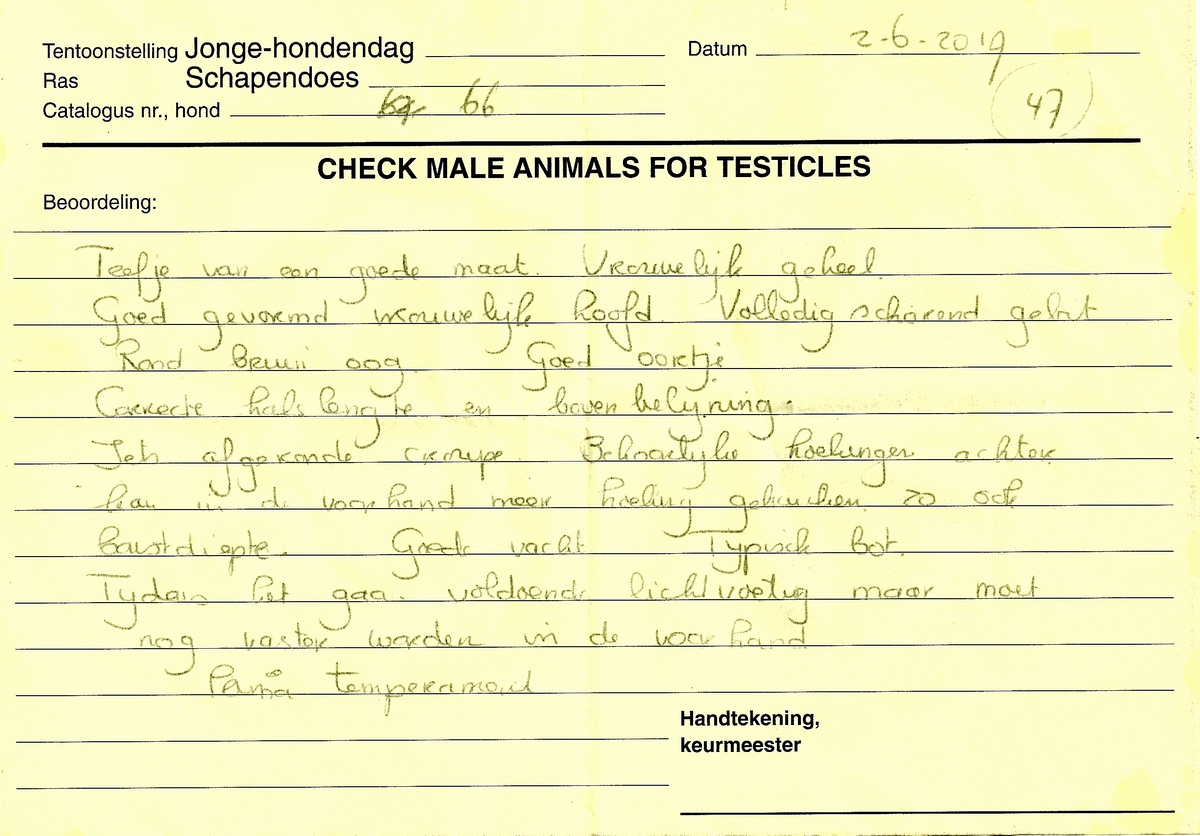 Tentoonstelling Jonge-hondendag
Datum 2-6-2019
Ras Schapendoes
Catalogus nr., hond 66
47
CHECK MALE ANIMALS FOR TESTICLES
Beoordeling:
Teefje van een goede maat. Vrouwelijk geheel
Goed gevormd vrouwelijk hoofd. Volledig scharend gebit
Rond bruin oog. Goed oortje
Correcte halslengte en bovenbelijning.
Iets afgeronde croupe. Behoorlijke hoekingen achter
kan in de voorhand meer hoeking gebruiken zo ook
borstdiepte. Goede vacht Typisch bot.
Tijdens het gaan voldoende lichtvoetig maar moet
nog vaster worden in de voorhand
Prima temperament
Handtekening,
keurmeester